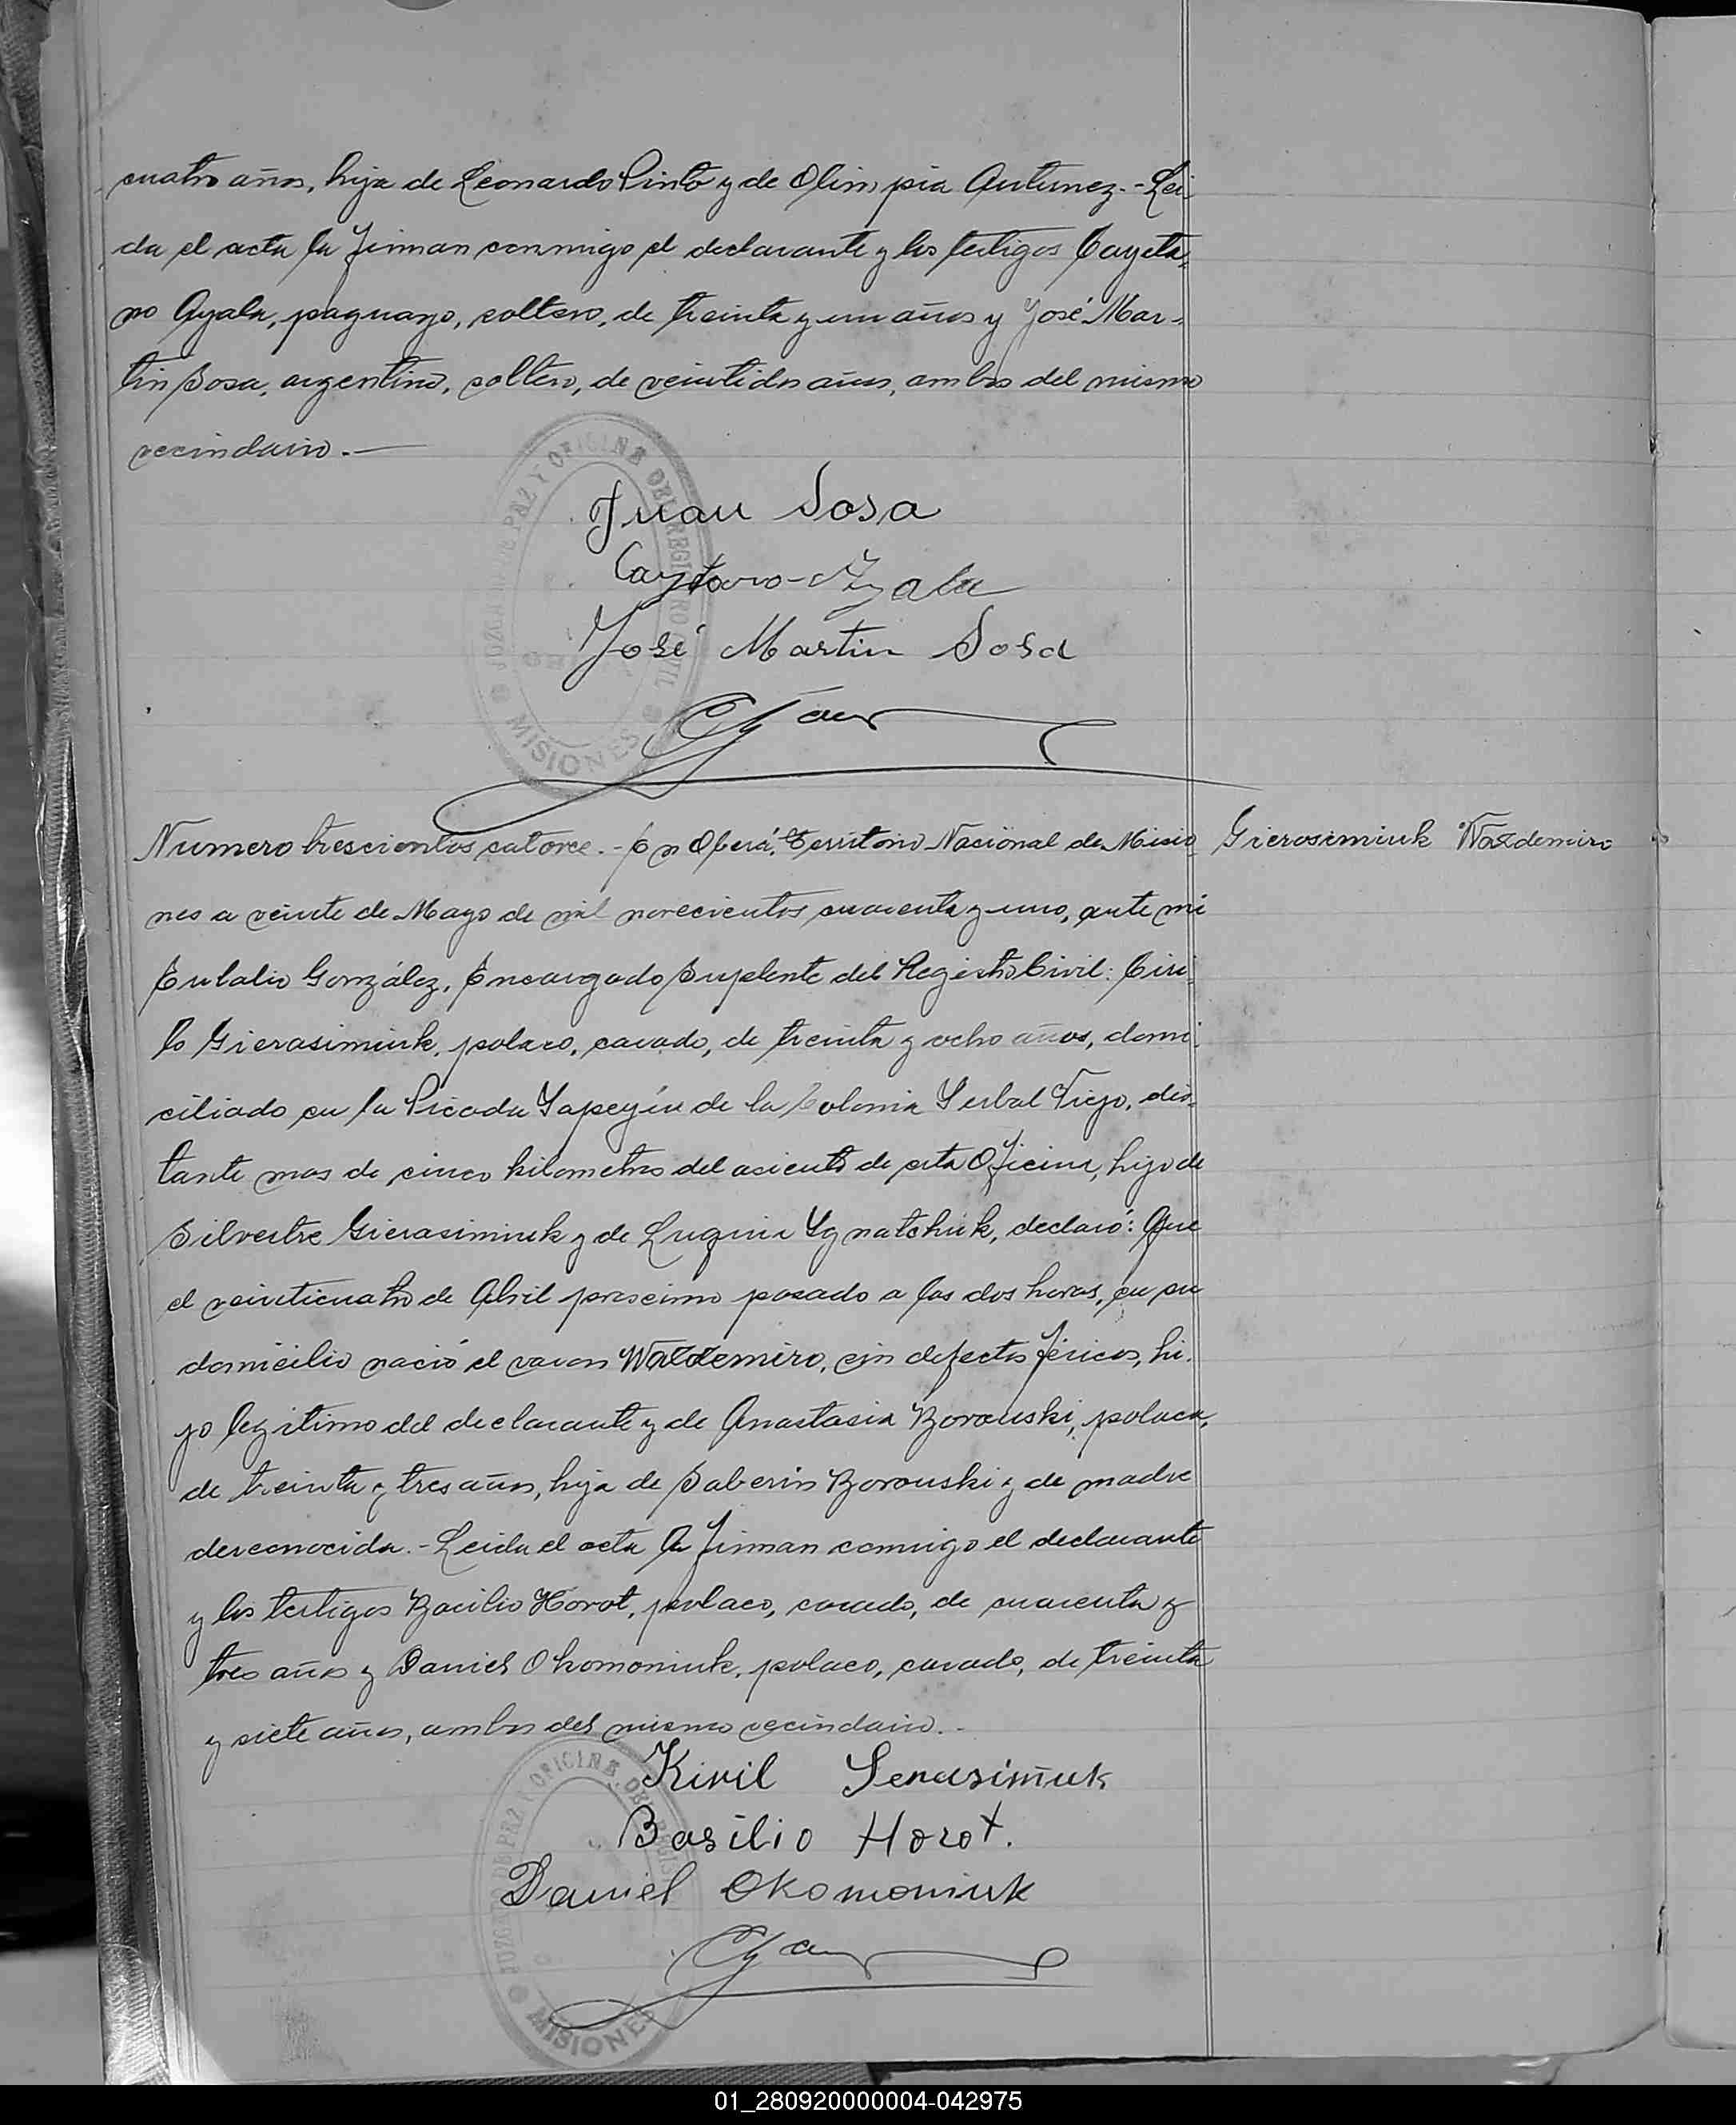 cuatro años, hija de Leonardo Pinto y de Olimpia Antunez.- Lei
da el acta la firman conmigo el declarante y los testigos Cayeta-
no Ayala, paguayo, soltero, de treinta y un años y José Mar-
tin Sosa, argentino, soltero, de veintidos años, ambos del mismo
vecindario.—
Juan Sosa
Caytano Ayala
José Martin Sosa
JUZGADO DE PAZ Y OFICINA DEL REGISTRO CIVIL
MISIONES
Numero trescientos catorce.- En Oberá, Territorio Nacional de Misio
Gierosimiuk Waldemiro
nes a veinte de Mayo de mil novecientos cuarenta y uno, ante mi
Eulalio González, Encargado Suplente del Registro Civil: Ciri-
lo Gierasimiuk, polaco, casado, de treinta y ocho años, domi-
ciliado en la Picada Yapeyú de la Colonia Yerbal Viejo, dis-
tante mas de cinco kilometros del asiento de esta Oficina, hijo de
Silvestre Gierasimiuk y de Ygnatchuk, declaró: Que
el veinticuatro de Abril proscimo pasado a las dos horas, en su
domicilio nació el varon Waldemiro, sin defectos fisicos, hi-
jo legitimo del declarante y de Anastasia Borouski, polaca,
de treinta y tres años, hija de Saberin Borouski y de madre
desconocida.- Leida el acta la firman conmigo el declarante
y los testigos Bacilio Horot, polaco, casado, de cuarenta y
tres años y Daniel Okomoniuk, polaco, casado, de treinta
y siete años, ambos del mismo vecindario.-
Kiril Gerasimiuk
Basilio Horot.
Daniel Okomoniuk
MISIONES
01_280920000004-042975